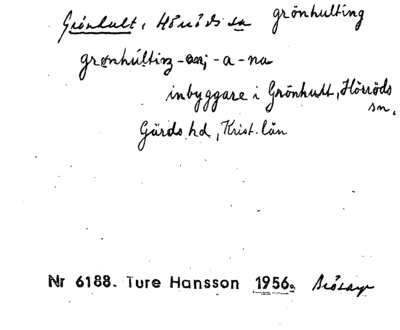 Grönhult, Hörröds sn grönhulting
grønhúltiŋ -ɑnj -a -na
inbyggare i Grönhult, Hörröds
sn,
Gärds hd, Krist. län
Nr 6188. Ture Hansson 1956.